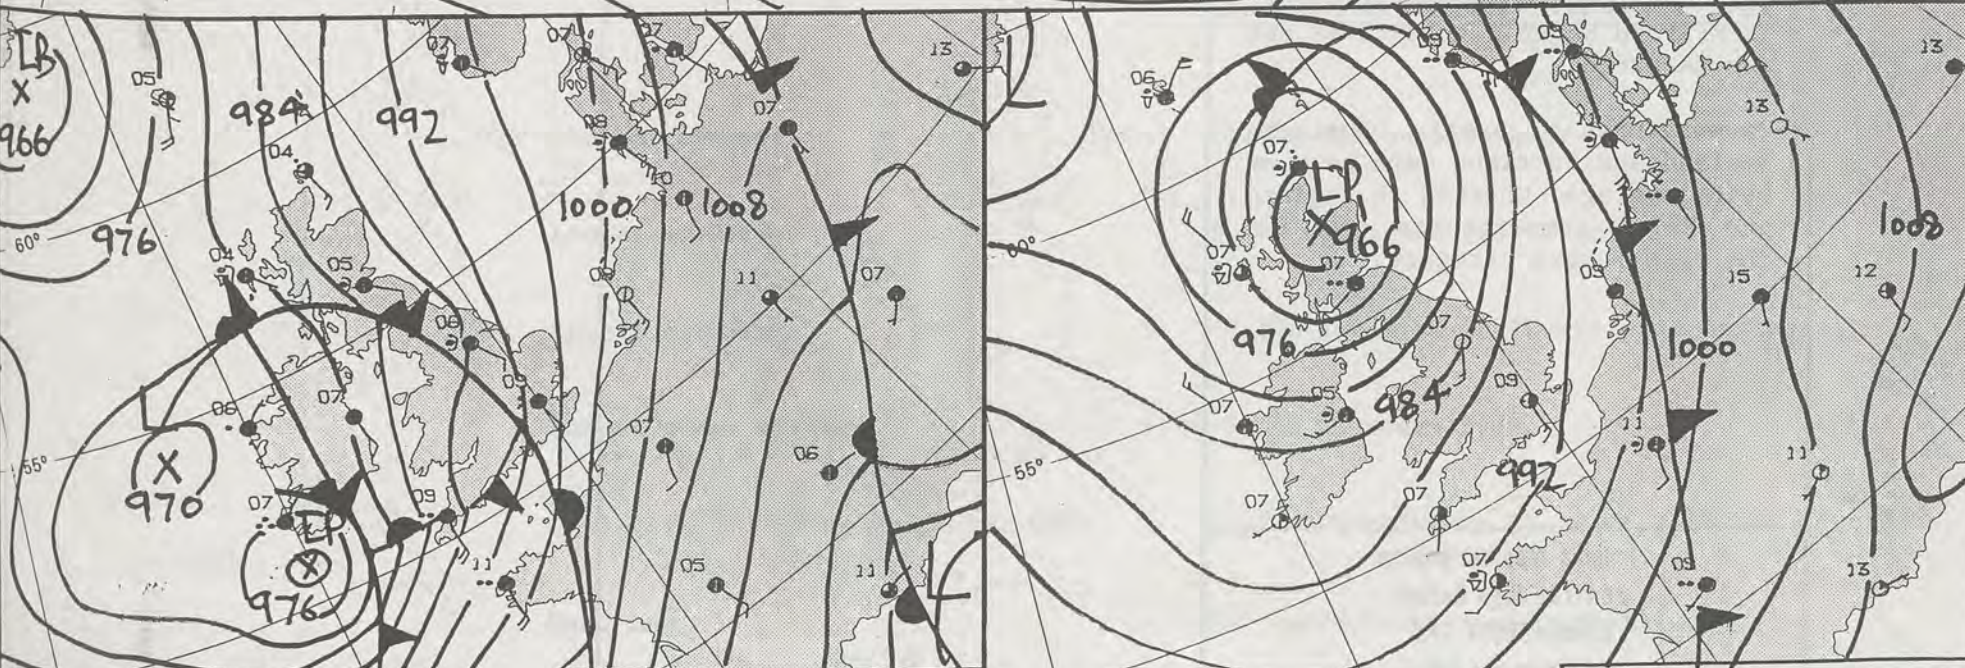 LB
966
05
984
992
07
07
07
13
04
08
07
10
1000
1008
60°
976
04
05
09
11
07
06
09
L
06
07
55°
970
07
LP
976
09
07
06
11
05
11
L
L
06
09
09
13
13
11
07
LP
966
12
1008
60°
07
07
09
15
12
976
07
1000
05
984
09
07
11
11
55°
992
07
07
07
09
13